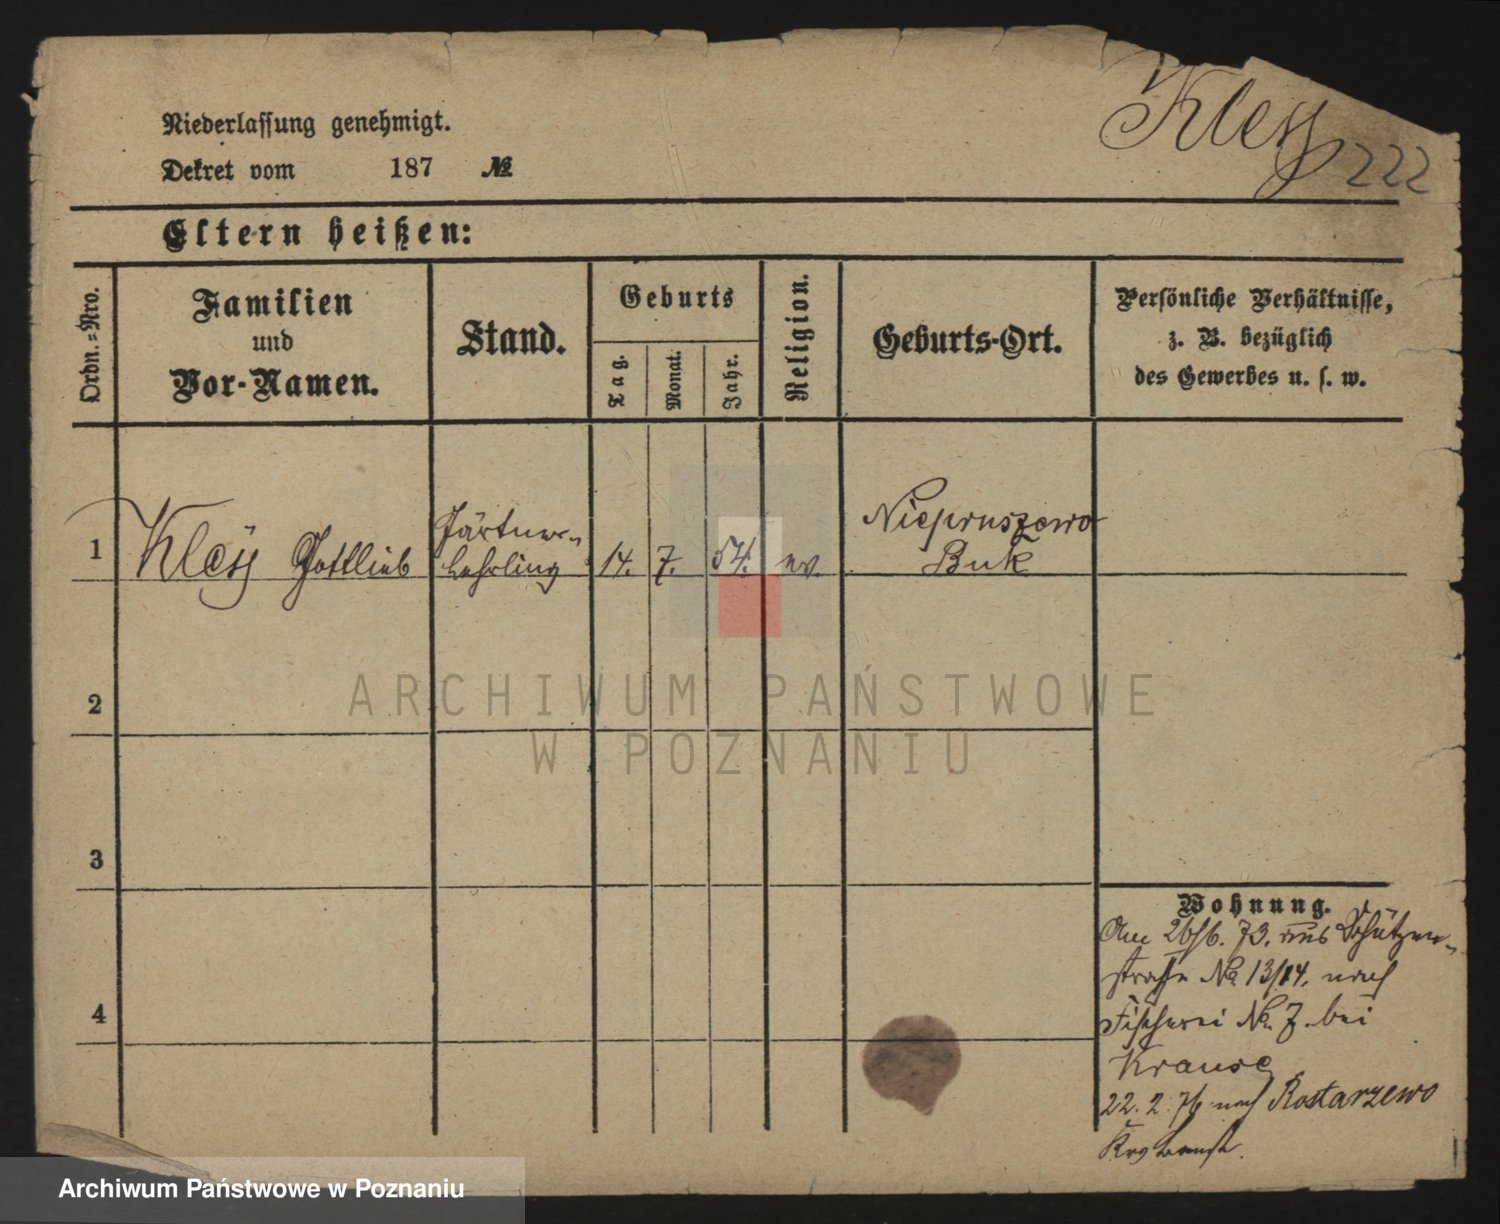 Niederlassung genehmigt.
Dekret vom 187 №
Kleyy 222
Eltern heißen:
Ordn.=Nro.
Familien
und
Vor-Namen.
Stand.
Geburts
Tag.
Monat.
Jahr.
Religion.
Geburts-Ort.
Persönliche Verhältnisse,
z. B. bezüglich
des Gewerbes u. s. w.
1
Gottlieb
Gärtner-
lehrling
14.
7.
54.
ev.
Niepruszewo
Buk
2
3
4
Wohnung.
Am 26/6. 73. aus Schützen-
straße No 13/14. nach
Fischerei No 7. bei
Krause
22. 2. 76 nach Rostarzewo
Krs Bomst.
ARCHIWUM PAŃSTWOWE
W POZNANIU
Archiwum Państwowe w Poznaniu